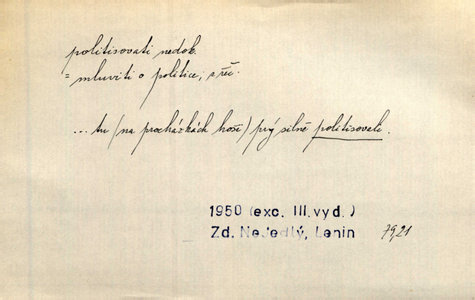 politisovati nedok.
= mluviti o politice, s řeč.
... tu (na procházkách hoši) prý silně politisovali.
1950 (exc. III. vyd.)
Zd. Nejedlý, Lenin 79,21